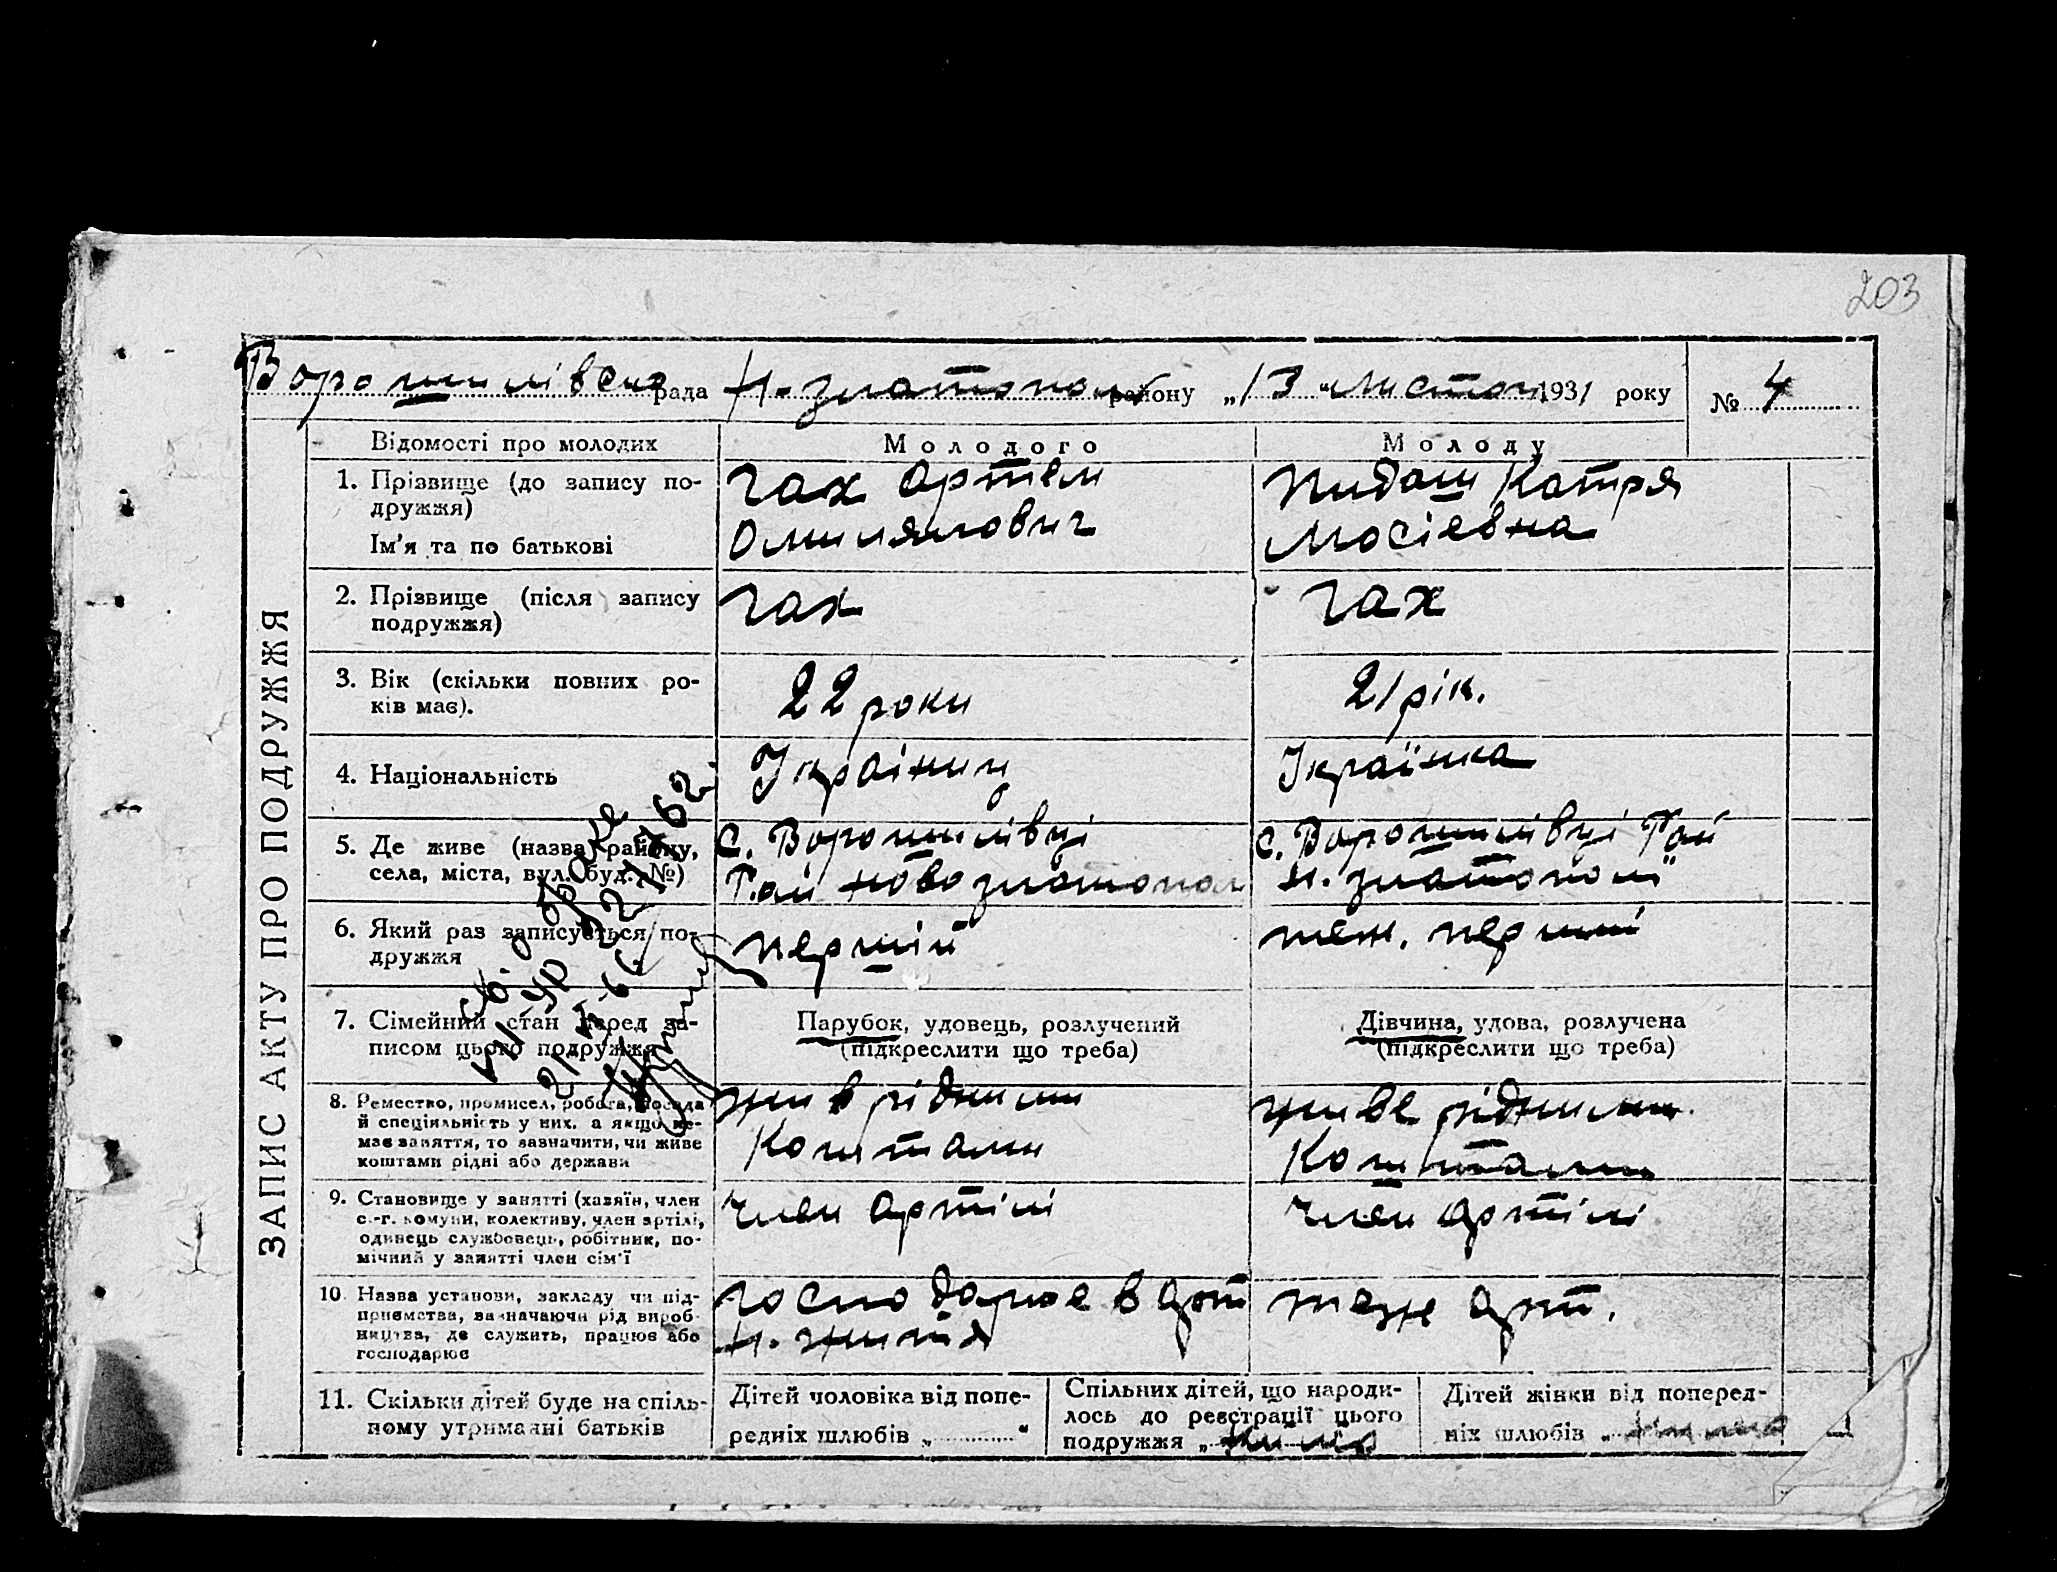 203
Ворошилівська рада Н.-златополь району „13“ Листоп. 1931 року № 4
ЗАПИС АКТУ ПРО ПОДРУЖЖЯ
Відомості про молодих Молодого Молоду
1. Прізвище (до запису по-
дружжя)
Ім'я та по батькові
Гах Артем
Омилянович
Пидаш Катря
Мосієвна
2. Прізвище (після запису
подружжя)
Гах
Гах
3. Вік (скільки повних ро-
ків має).
22 роки
21 рік.
4. Національність
Україниц
Українка
5. Де живе (назва району,
села, міста, вул. буд. №)
с. Ворошилівці
Рай Новозлатопол
с. Ворошилівці Рай
Н. златополь
6. Який раз записується по-
дружжя
перший
теж. перший
7. Сімейний стан перед за-
писом цього подружжя
Парубок, удовець, розлучений
(підкреслити що треба)
Дівчина, удова, розлучена
(підкреслити що треба)
8. Ремество, промисел, робота, посада
й спеціяльність у них, а якщо не-
має заняття, то зазначити, чи живе
коштами рідні або держави
жив рідними
Коштами
живе рідними
Коштами
9. Становище у занятті (хазяїн, член
с.-г. комуни, колективу, член артілі,
одинець службовець, робітник, по-
мічний у занятті член сім'ї
член артілі
член артілі
10. Назва установи, закладу чи під-
приємства, зазначаючи рід вироб-
ництва, де служить, працює або
господарює
господарює в арт
Н. життя
теж арт.
11. Скільки дітей буде на спіль-
ному утриманні батьків
Дітей чоловіка від попе-
редніх шлюбів „ “
Спільних дітей, що народи-
лось до реєстрації цього
подружжя „ нима
Дітей жінки від поперед-
ніх шлюбів „ нима
св. о браке